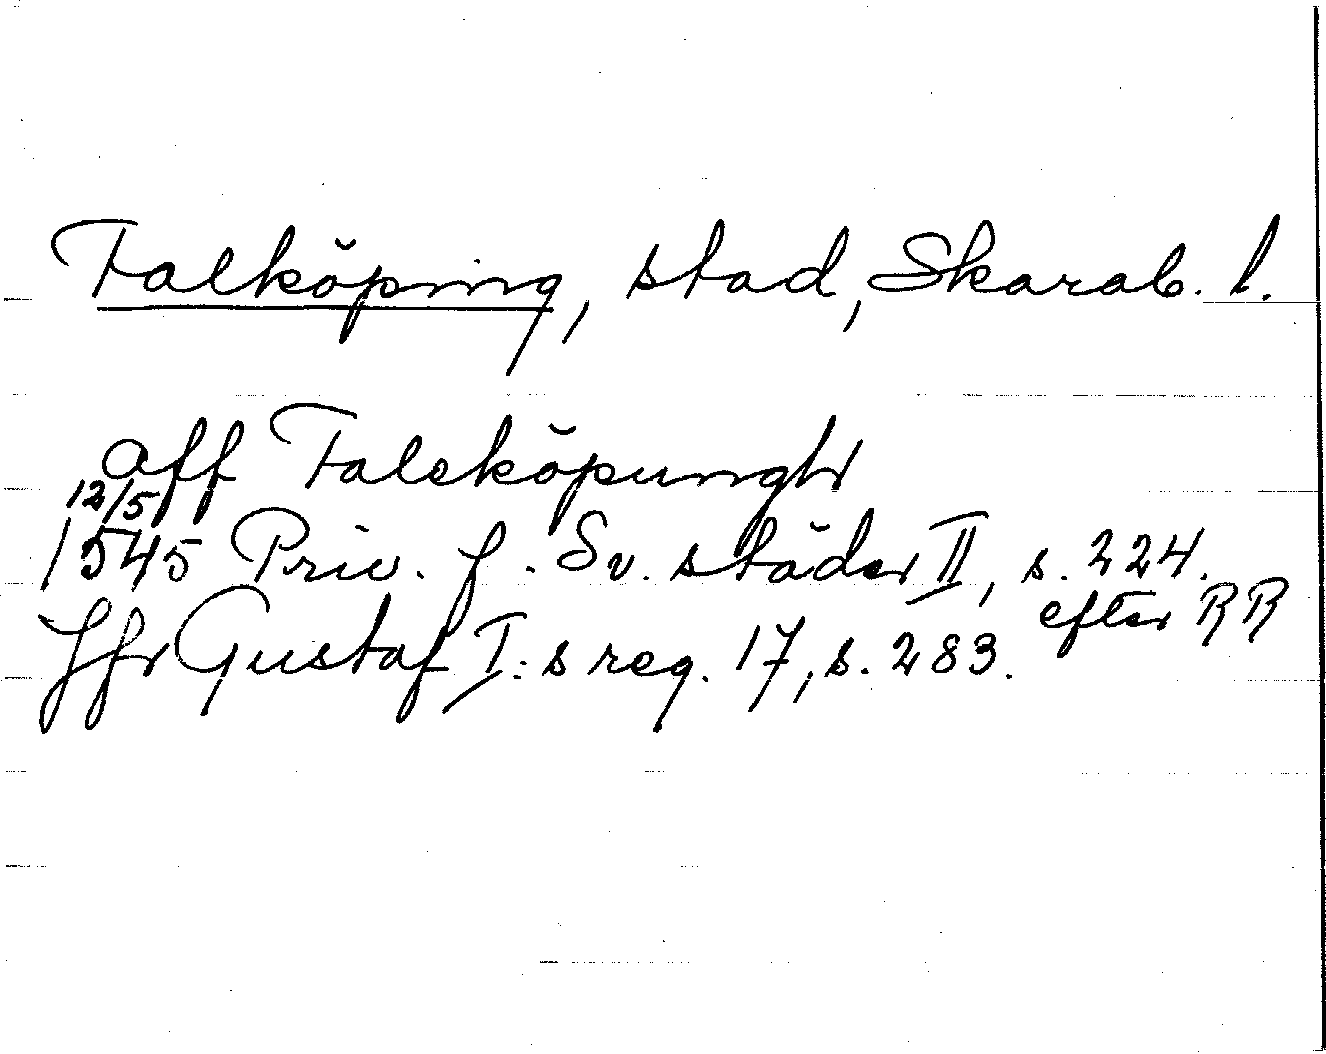 Falköping, stad, Skarab. l.
aff Faleköpungh
12/5
1545 Priv. f. Sv. städer II, s. 224.
efter RR
Jfr Gustaf I:s reg. 17, s. 283.